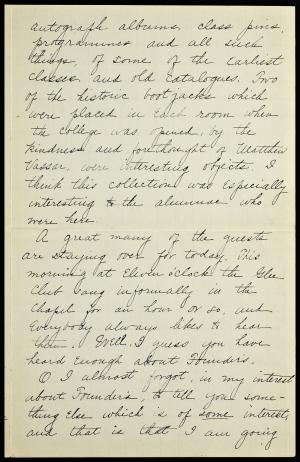 autograph albums, class pins,
programmes and all such
things, of some of the earliest
classes, and old catalogues. Two
of the historic bootjacks which
were placed in each room when
the college was opened, by the
kindness and forethought of Matthew
Vassar, were interesting objects. I
think this collection was especially
interesting to the alumnae who
were here.
A great many of the guests
are staying over for today. This
morning at Eleven o'clock the Glee
Club sang informally in the
Chapel for an hour or so, and
Everybody always likes to hear
them. Well, I guess you have
heard Enough about Founder's.
O I almost forgot, in my interest
about Founder's, to tell you some-
thing Else which is of some interest,
and that is that I am going